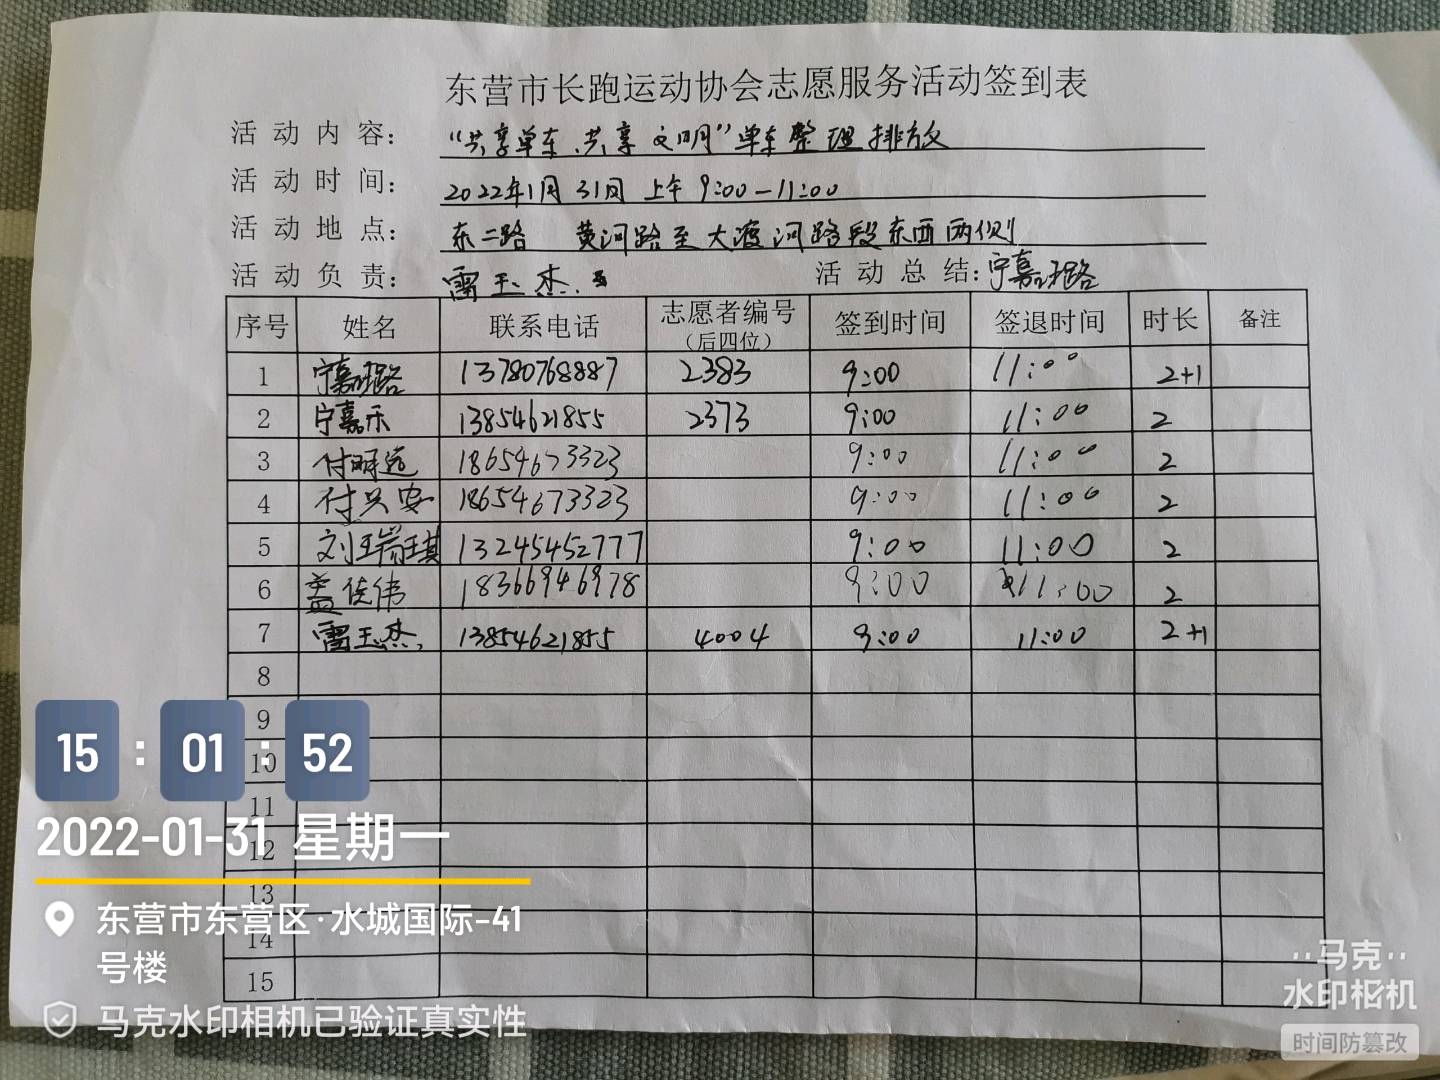 东营市长跑运动协会志愿服务活动签到表
活动内容： “共享单车.共享文明”单车整理排放
活动时间： 2022年1月31日 上午 9:00-11:00
活动地点： 东二路 黄河路至大渡河路段东西两侧
活动负责： 雷玉杰. 活动总结：宁嘉璐
序号 姓名 联系电话 志愿者编号（后四位） 签到时间 签退时间 时长 备注
1 宁嘉璐 13780768887 2383 9:00 11:00 2+1
2 宁嘉乐 13854621855 2373 9:00 11:00 2
3 付明远 18654673323 9:00 11:00 2
4 付兴安 18654673323 9:00 11:00 2
5 刘瑞琪 13245452777 9:00 11:00 2
6 盖俊伟 18366946978 9:00 11:00 2
7 雷玉杰. 13854621855 4004 9:00 11:00 2+1
8
9
10
11
12
13
14
15
15:01:52
2022-01-31 星期一
东营市东营区·水城国际-41
号楼
马克水印相机已验证真实性
马克
水印相机
时间防篡改